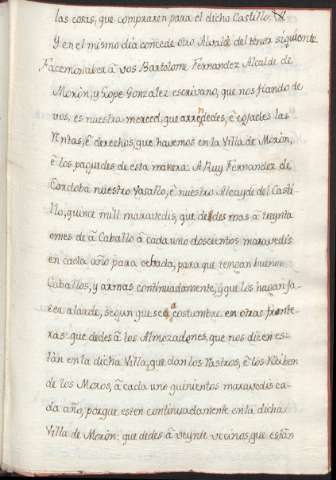 las cosas, que compraren para el dicho Castillo.
Y en el mismo dia concede otro Alvalá del tenor siguiente
Facemos saber à vos Bartolome Fernandez Alcalde de
Morón, y Lope Gonzalez escrivano, que nos fiando de
vos, es nuestra merced, que arredes, è cojades las
Rentas, è derechos, que havemos en la Villa de Morón,
è los paguedes de esta manera: A Ruy Fernandez de
Cordoba nuestro Vasallo, è nuestro Alcayde del Casti-
llo, quince mill maravedis, que dedes mas à treynta
omes de à Caballo à cada uno doscientos maravedis
en cada año para cebada, para que tengan buenos
Caballos, y armas continuadamente, y que los hagan fa-
cer alarde, segun que se acostumbre en otras fronte-
ras: que dedes à los Almozadones, que nos dizen es-
tàn en la dicha Villa, que dan los Rastros, è los Reciben
de los Moros, à cada uno quinientos maravedis ca-
da año, porque esten continuadamente en la dicha
Villa de Morón: que dedes à veynte vecinos, que están